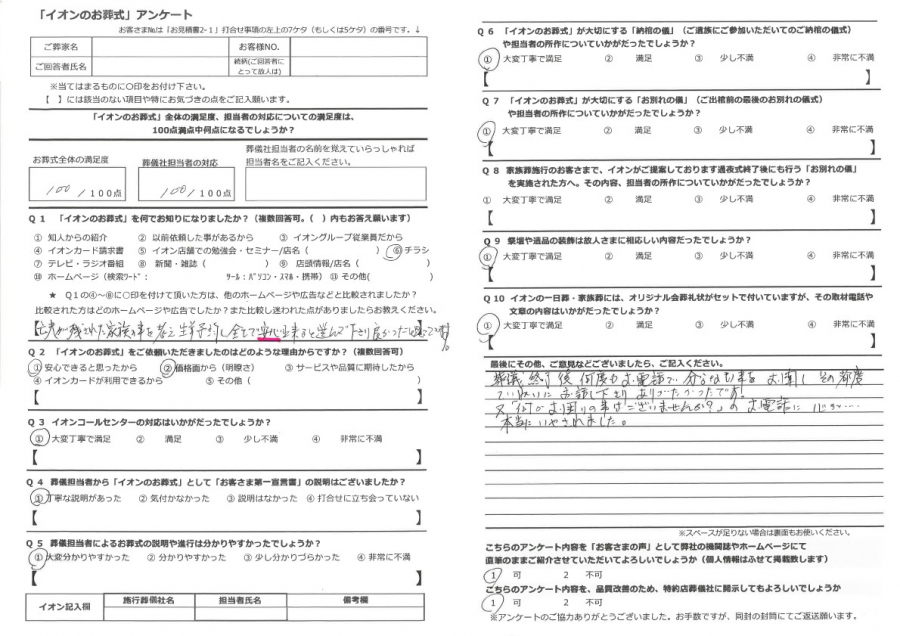 「イオンのお葬式」アンケート
お客さま№は「お見積書2-1」打合せ事項の左上の7ケタ（もしくは5ケタ）の番号です。↓
ご葬家名 お客様NO.
ご回答者氏名 続柄(ご回答者にとって故人は)
※当てはまるものに○印をお付け下さい。
【　】には該当のない項目や特にお気づきの点をご記入願います。
「イオンのお葬式」全体の満足度、担当者の対応についての満足度は、
100点満点中何点になるでしょうか？
お葬式全体の満足度 葬儀社担当者の対応 葬儀社担当者の名前を覚えていらっしゃれば
担当者名をご記入ください。
100/100点 100/100点
Q１ 「イオンのお葬式」を何でお知りになりましたか？（複数回答可。（ ）内もお答え願います）
① 知人からの紹介 ② 以前依頼した事があるから ③ イオングループ従業員だから
④ イオンカード請求書 ⑤ イオン店舗での勉強会・セミナー/店名（ ） ⑥チラシ
⑦ テレビ・ラジオ番組 ⑧ 新聞・雑誌（ ） ⑨ 店頭情報/店名（ ）
⑩ ホームページ（検索ﾜｰﾄﾞ： ﾂｰﾙ：ﾊﾟｿｺﾝ・ｽﾏﾎ・携帯） ⑪ その他( )
★ Q１の④～⑩に○印を付けて頂いた方は、他のホームページや広告などと比較されましたか？
比較された方はどのホームページや広告でしたか？また比較し迷われた点がありましたらお教えください。
Q２ 「イオンのお葬式」をご依頼いただきましたのはどのような理由からですか？（複数回答可）
①安心できると思ったから ②価格面から（明瞭さ） ③ サービスや品質に期待したから
④ イオンカードが利用できるから ⑤ その他（ ）
【 】
Q３ イオンコールセンターの対応はいかがだったでしょうか？
① 大変丁寧で満足 ② 満足 ③ 少し不満 ④ 非常に不満
【 】
Q４ 葬儀担当者から「イオンのお葬式」として「お客さま第一宣言書」の説明はございましたか？
①丁寧な説明があった ② 気付かなかった ③ 説明はなかった ④ 打合せに立ち会っていない
【 】
Q５ 葬儀担当者によるお葬式の説明や進行は分かりやすかったでしょうか？
①大変分かりやすかった ② 分かりやすかった ③ 少し分かりづらかった ④ 非常に不満
【 】
イオン記入欄 施行葬儀社名 担当者氏名 備考欄
Q６ 「イオンのお葬式」が大切にする「納棺の儀」（ご遺族にご参加いただいてのご納棺の儀式）
や担当者の所作についていかがだったでしょうか？
① 大変丁寧で満足 ② 満足 ③ 少し不満 ④ 非常に不満
【 】
Q７ 「イオンのお葬式」が大切にする「お別れの儀」（ご出棺前の最後のお別れの儀式）
や担当者の所作についていかがだったでしょうか？
① 大変丁寧で満足 ② 満足 ③ 少し不満 ④ 非常に不満
【 】
Q８ 家族葬施行のお客さまで、イオンがご提案しております通夜式終了後にも行う「お別れの儀」
を実施された方へ。その内容、担当者の所作についていかがだったでしょうか？
① 大変丁寧で満足 ② 満足 ③ 少し不満 ④ 非常に不満
【 】
Q９ 祭壇や遺品の装飾は故人さまに相応しい内容だったでしょうか？
① 大変丁寧で満足 ② 満足 ③ 少し不満 ④ 非常に不満
【 】
Q10 イオンの一日葬・家族葬には、オリジナル会葬礼状がセットで付いていますが、その取材電話や
文章の内容はいかがだったでしょうか？
① 大変丁寧で満足 ② 満足 ③ 少し不満 ④ 非常に不満
【 】
最後にその他、ご意見などございましたら、ご記入ください。
葬儀終了後 何度もお電話で 分らない事を お聞し その都度
ていねいに お話し下さり ありがたかったです。
又「何か お困りの事はございませんか？」の お電話に 心が…
本当に いやされました。
※スペースが足りない場合は裏面もお使いください。
こちらのアンケート内容を「お客さまの声」として弊社の機関誌やホームページにて
直筆のままご紹介させていただいてよろしいでしょうか（個人情報はふせて掲載致します）
1 可 2 不可
こちらのアンケート内容を、品質改善のため、特約店葬儀社に開示してもよろしいでしょうか
1 可 2 不可
※アンケートのご協力ありがとうございました。お手数ですが、同封の封筒にてご返送願います。